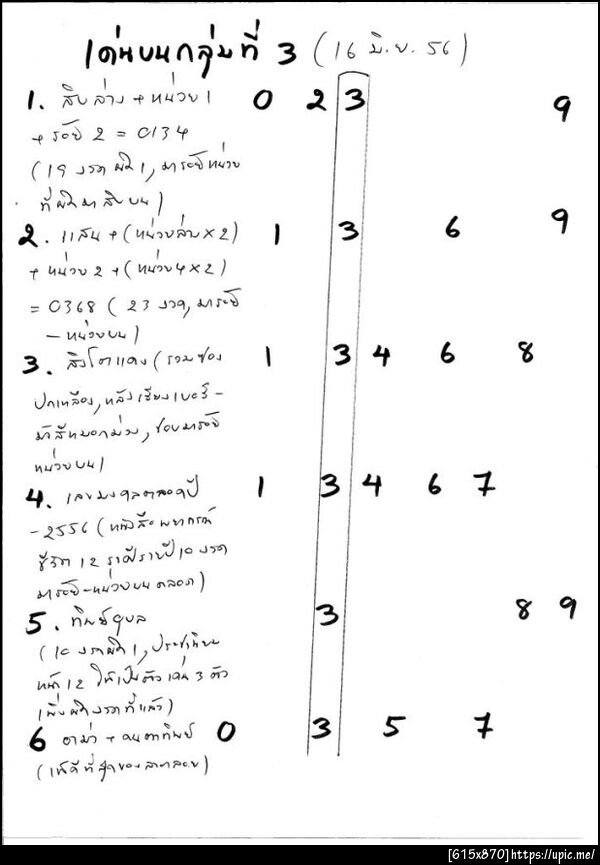 เด่นบนกลุ่มที่ 3 (16 มิ.ย. 56)
1. สิบล่าง + หน่วย 1 0 2 3 9
+ ร้อย 2 = 0134
(19 งวดผิด 1, มาร้อยหน่วย
ที่ผิดมาสิบบน)
2. แสน + (หน่วยล่าง x 2) 1 3 6 9
+ หน่วย 2 + (หน่วย 4 x 2)
= 0368 (23 งวด, มาร้อย
- หน่วยบน)
3. สิงโตแดง (รวมซอง 1 3 4 6 8
ปกเหลือง, หลังเรียงเบอร์ -
ชอบมาร้อย
หน่วยบน)
4. เลขมงคลตลอดปี 1 3 4 6 7
- 2556 (หนังสือพยากรณ์
ชีวิต 12 ราศี 10 งวด
มาร้อย - หน่วยบนตลอด)
5. ทิพย์อุบล 3 8 9
(10 งวดผิด 1,
หน้า 12 ให้เป็นตัวเด่น 3 ตัว
เพิ่งผิดงวดที่แล้ว)
6 อาม่า + 0 3 5 7
(เพ้ดีที่สุดของ
[615x870]https://upic.me/